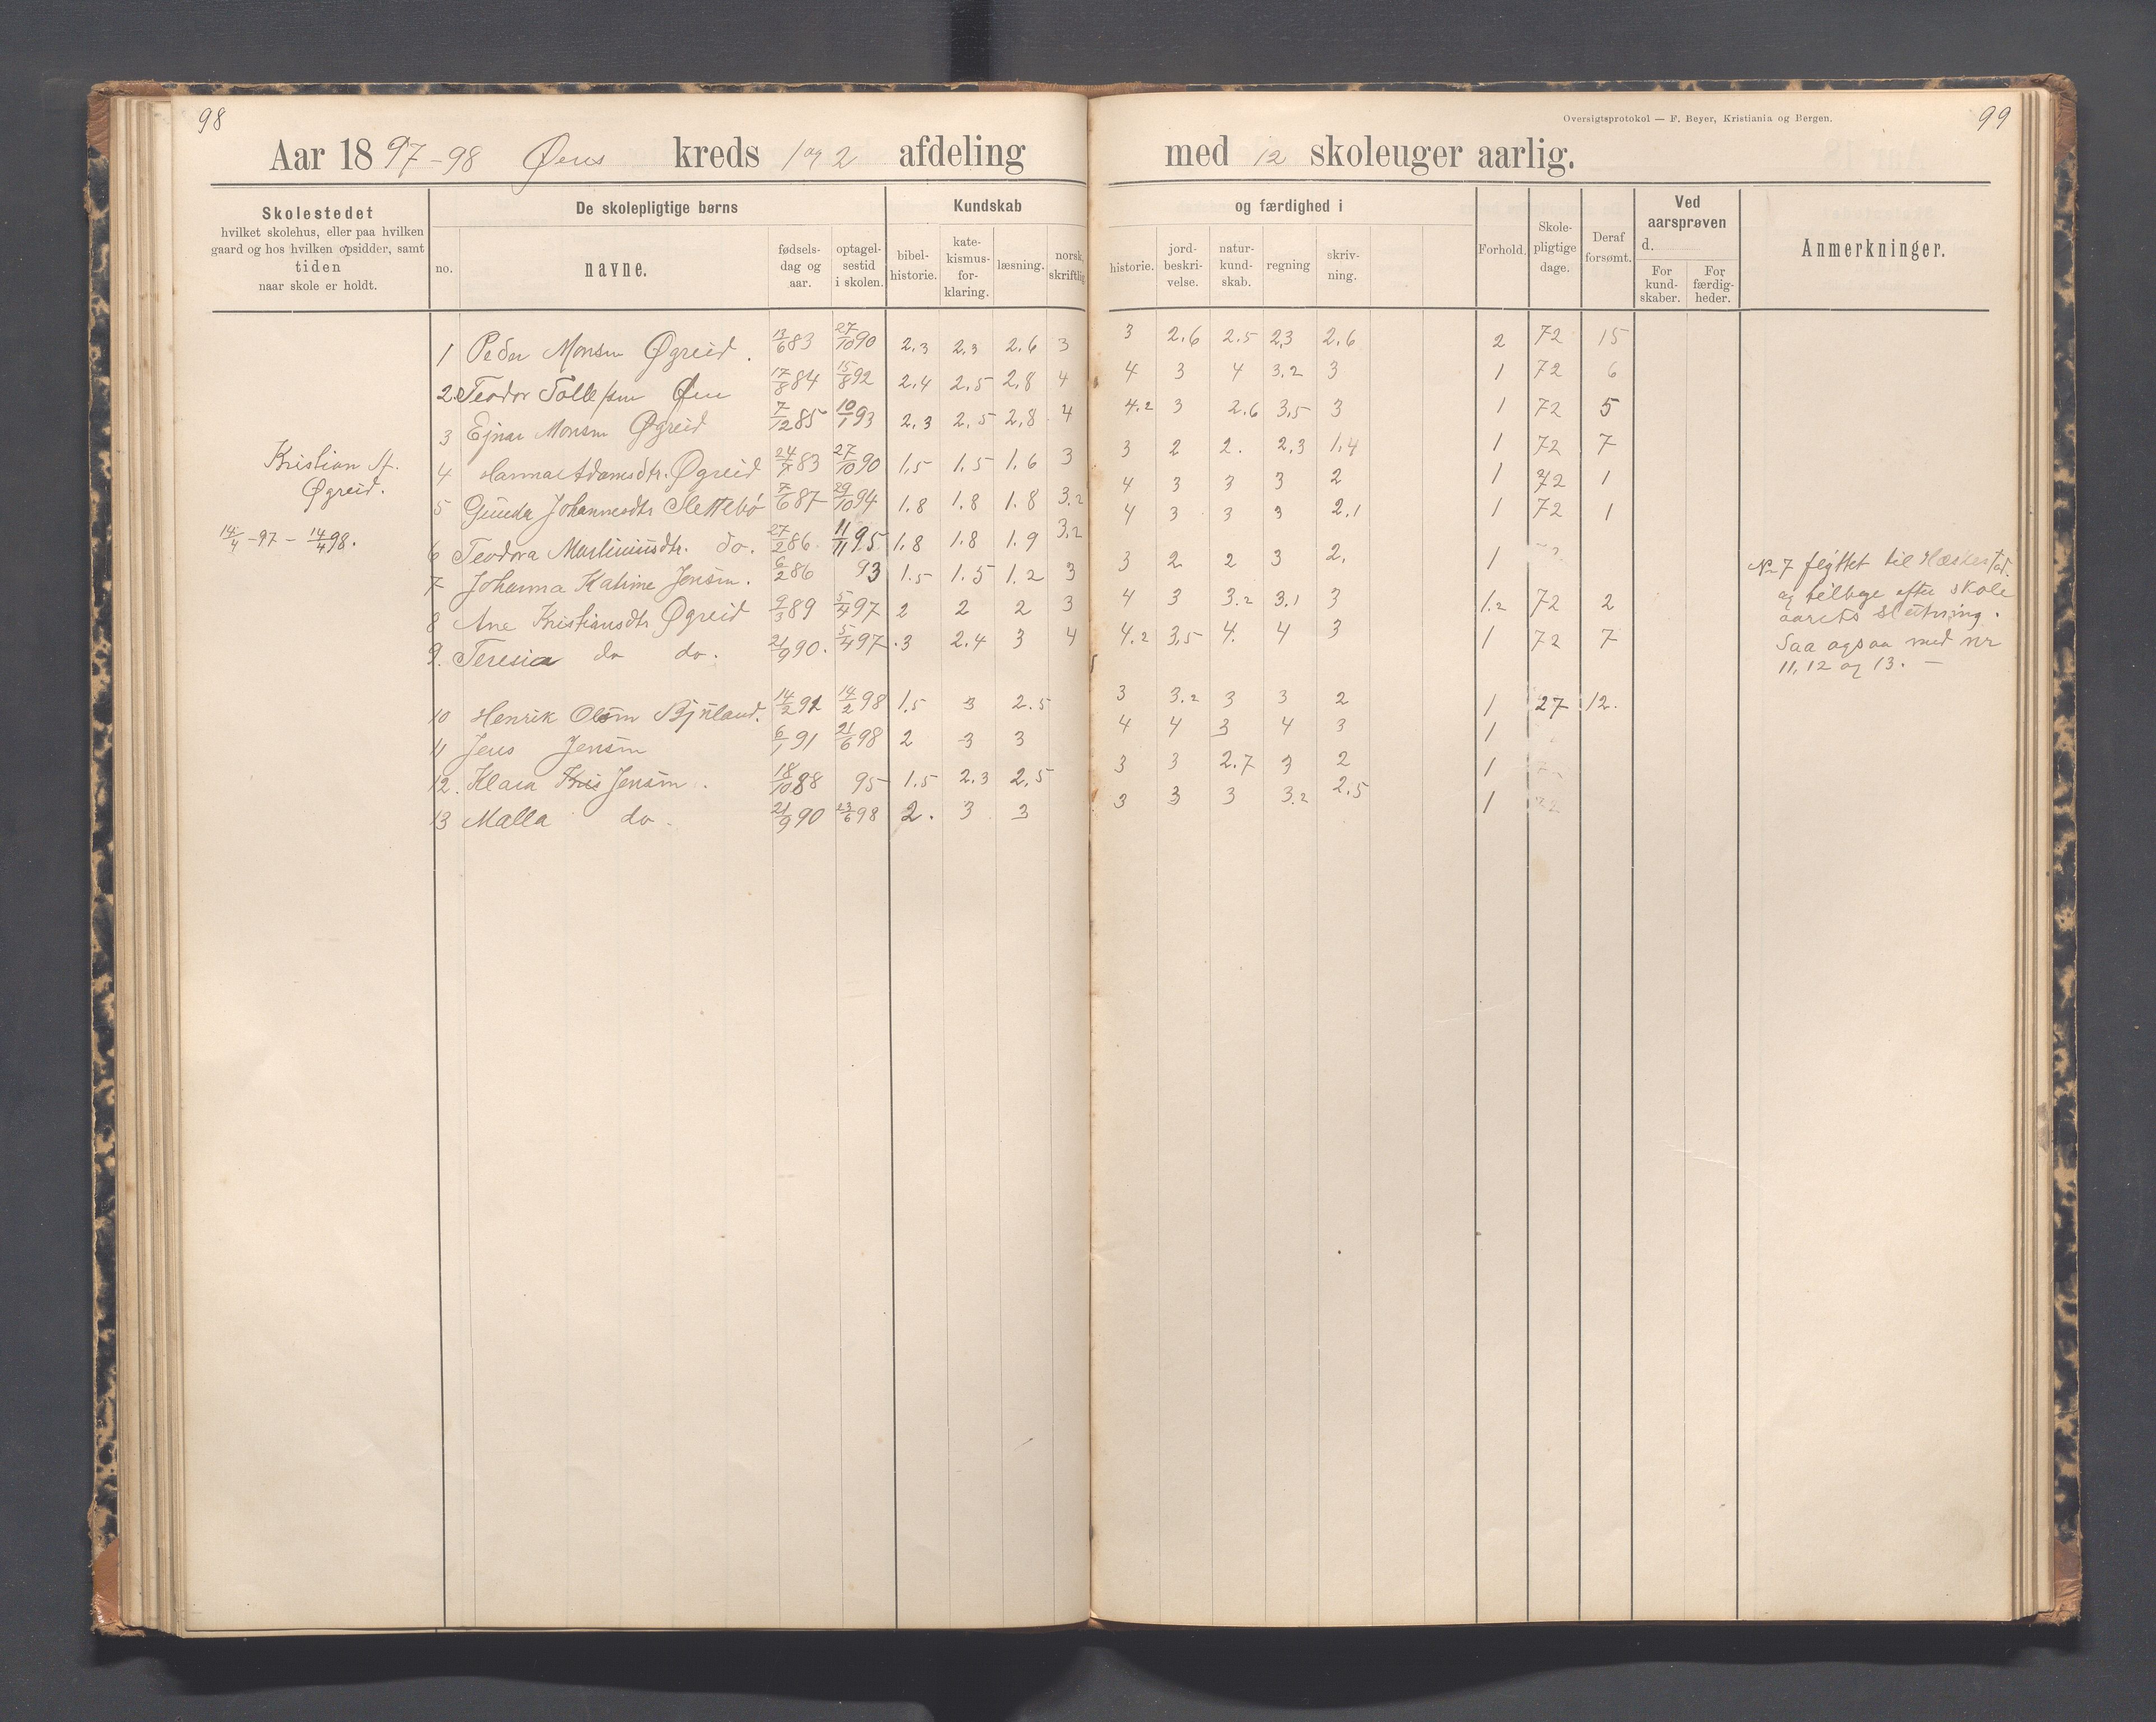 98
Oversigtsprotokol — F. Beyer, Kristiania og Bergen.
99
Aar 1897-98 Øens kreds 1 og 2 afdeling med 12 skoleuger aarlig.
Skolestedet
hvilket skolehus, eller paa hvilken
gaard og hos hvilken opsidder, samt
tiden
naar skole er holdt.
De skolepligtige børns
no.
navne.
fødsels-
dag og
aar.
optagel-
sestid
i skolen.
Kundskab
bibel-
historie.
kate-
kismus-
for-
klaring.
læsning.
norsk,
skriftlig
og færdighed i
historie.
jord-
beskri-
velse.
natur-
kund-
skab.
regning
skriv-
ning.
Forhold.
Skole-
pligtige
dage.
Deraf
forsømt.
Ved
aarsprøven
d.
For
kund-
skaber.
For
færdig-
heder.
Anmerkninger.
Kristian A.
Øgreid.
14/4-97 - 14/4 98.
1 Peder Monsen Øgreid. 13/6 83 27/10 90 2.3 2.3 2.6 3 3 2.6 2.5 2.3 2.6 2 72 15
2. Teodor Tollefsen Øen 17/8 84 15/8 92 2.4 2.5 2.8 4 4 3 4 3.2 3 1 72 6
3 Ejnar Monsen Øgreid 7/12 85 10/1 93 2.3 2.5 2.8 4 4.2 3 2.6 3.5 3 1 72 5
4 Hanna Adamsdtr. Øgreid 24/7 83 27/10 90 1.5 1.5 1.6 3 3 2 2. 2.3 1.4 1 72 7
5 Gunda Johannesdtr Slettebø 7/6 87 29/10 94 1.8 1.8 1.8 3.2 4 3 3 3 2 1 72 1
6 Teodora Martiniusdtr. do. 27/2 86. 11/11 95 1.8 1.8 1.9 3.2 4 3 3 3 2.1 1 72 1
7 Johanna Katrine Jensen. 6/2 86 93 1.5 1.5 1.2 3 3 2 2 3 2. 1
8 Ane Kristiansdtr Øgreid 9/3 89 5/4 97 2 2 2 3 4 3 3.2 3.1 3 1.2 72 2
9. Teresia do do. 21/9 90. 5/4 97 3 2.4 3 4 4.2 3.5 4. 4 3 1 72 7
10 Henrik Olsen Bjuland. 14/2 91 14/2 98 1.5 3 2.5 3 3.2 3 3 2 1 27 12.
11 Jens Jensen 6/1 91 21/6 98 2 3 3 4 4 3 4 3 1
12. Klara Kris Jensen. 18/10 88 95 1.5 2.3 2.5 3 3 2.7 3 2 1
13 Malla do. 21/9 90 23/6 98 2. 3 3 3 3 3 3.2 2.5 1 72
No 7 flyttet til Hæskestad.
og tilbage efter skole
aarets slutning.
Saa ogsaa med nr
11, 12 og 13. —